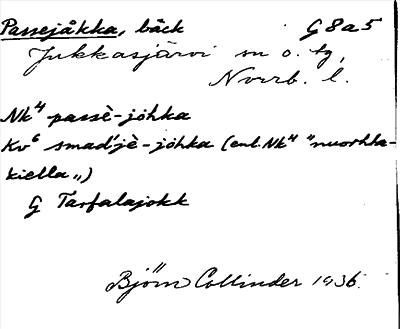 Passejåkka, bäck G8a5
Jukkasjärvi sn o. tg,
Norrb. l.
Nk⁴ passè-jòhka
Kv⁶ smad'jè-jòhka (enl. Nk⁴ "nuorhta-
kiella")
G Tarfalajokk
Björn Collinder 1936.